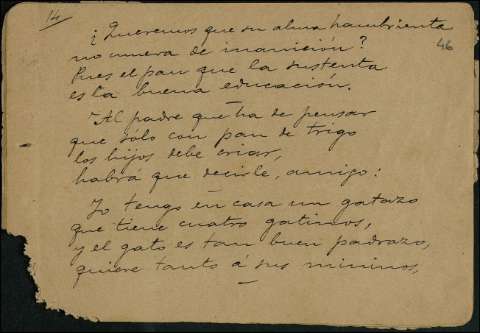 14
46
¿Queremos que su alma hambrienta
no muera de inanición?
Pues el pan que la sustenta
es la buena educación.
—
Al padre que ha de pensar
que sólo con pan de trigo
los hijos debe criar,
habrá que decirle, amigo:
Yo tengo en casa un gatazo
que tiene cuatro gatinos,
y el gato es tan buen padrazo,
quiere tanto á sus mininos,
—